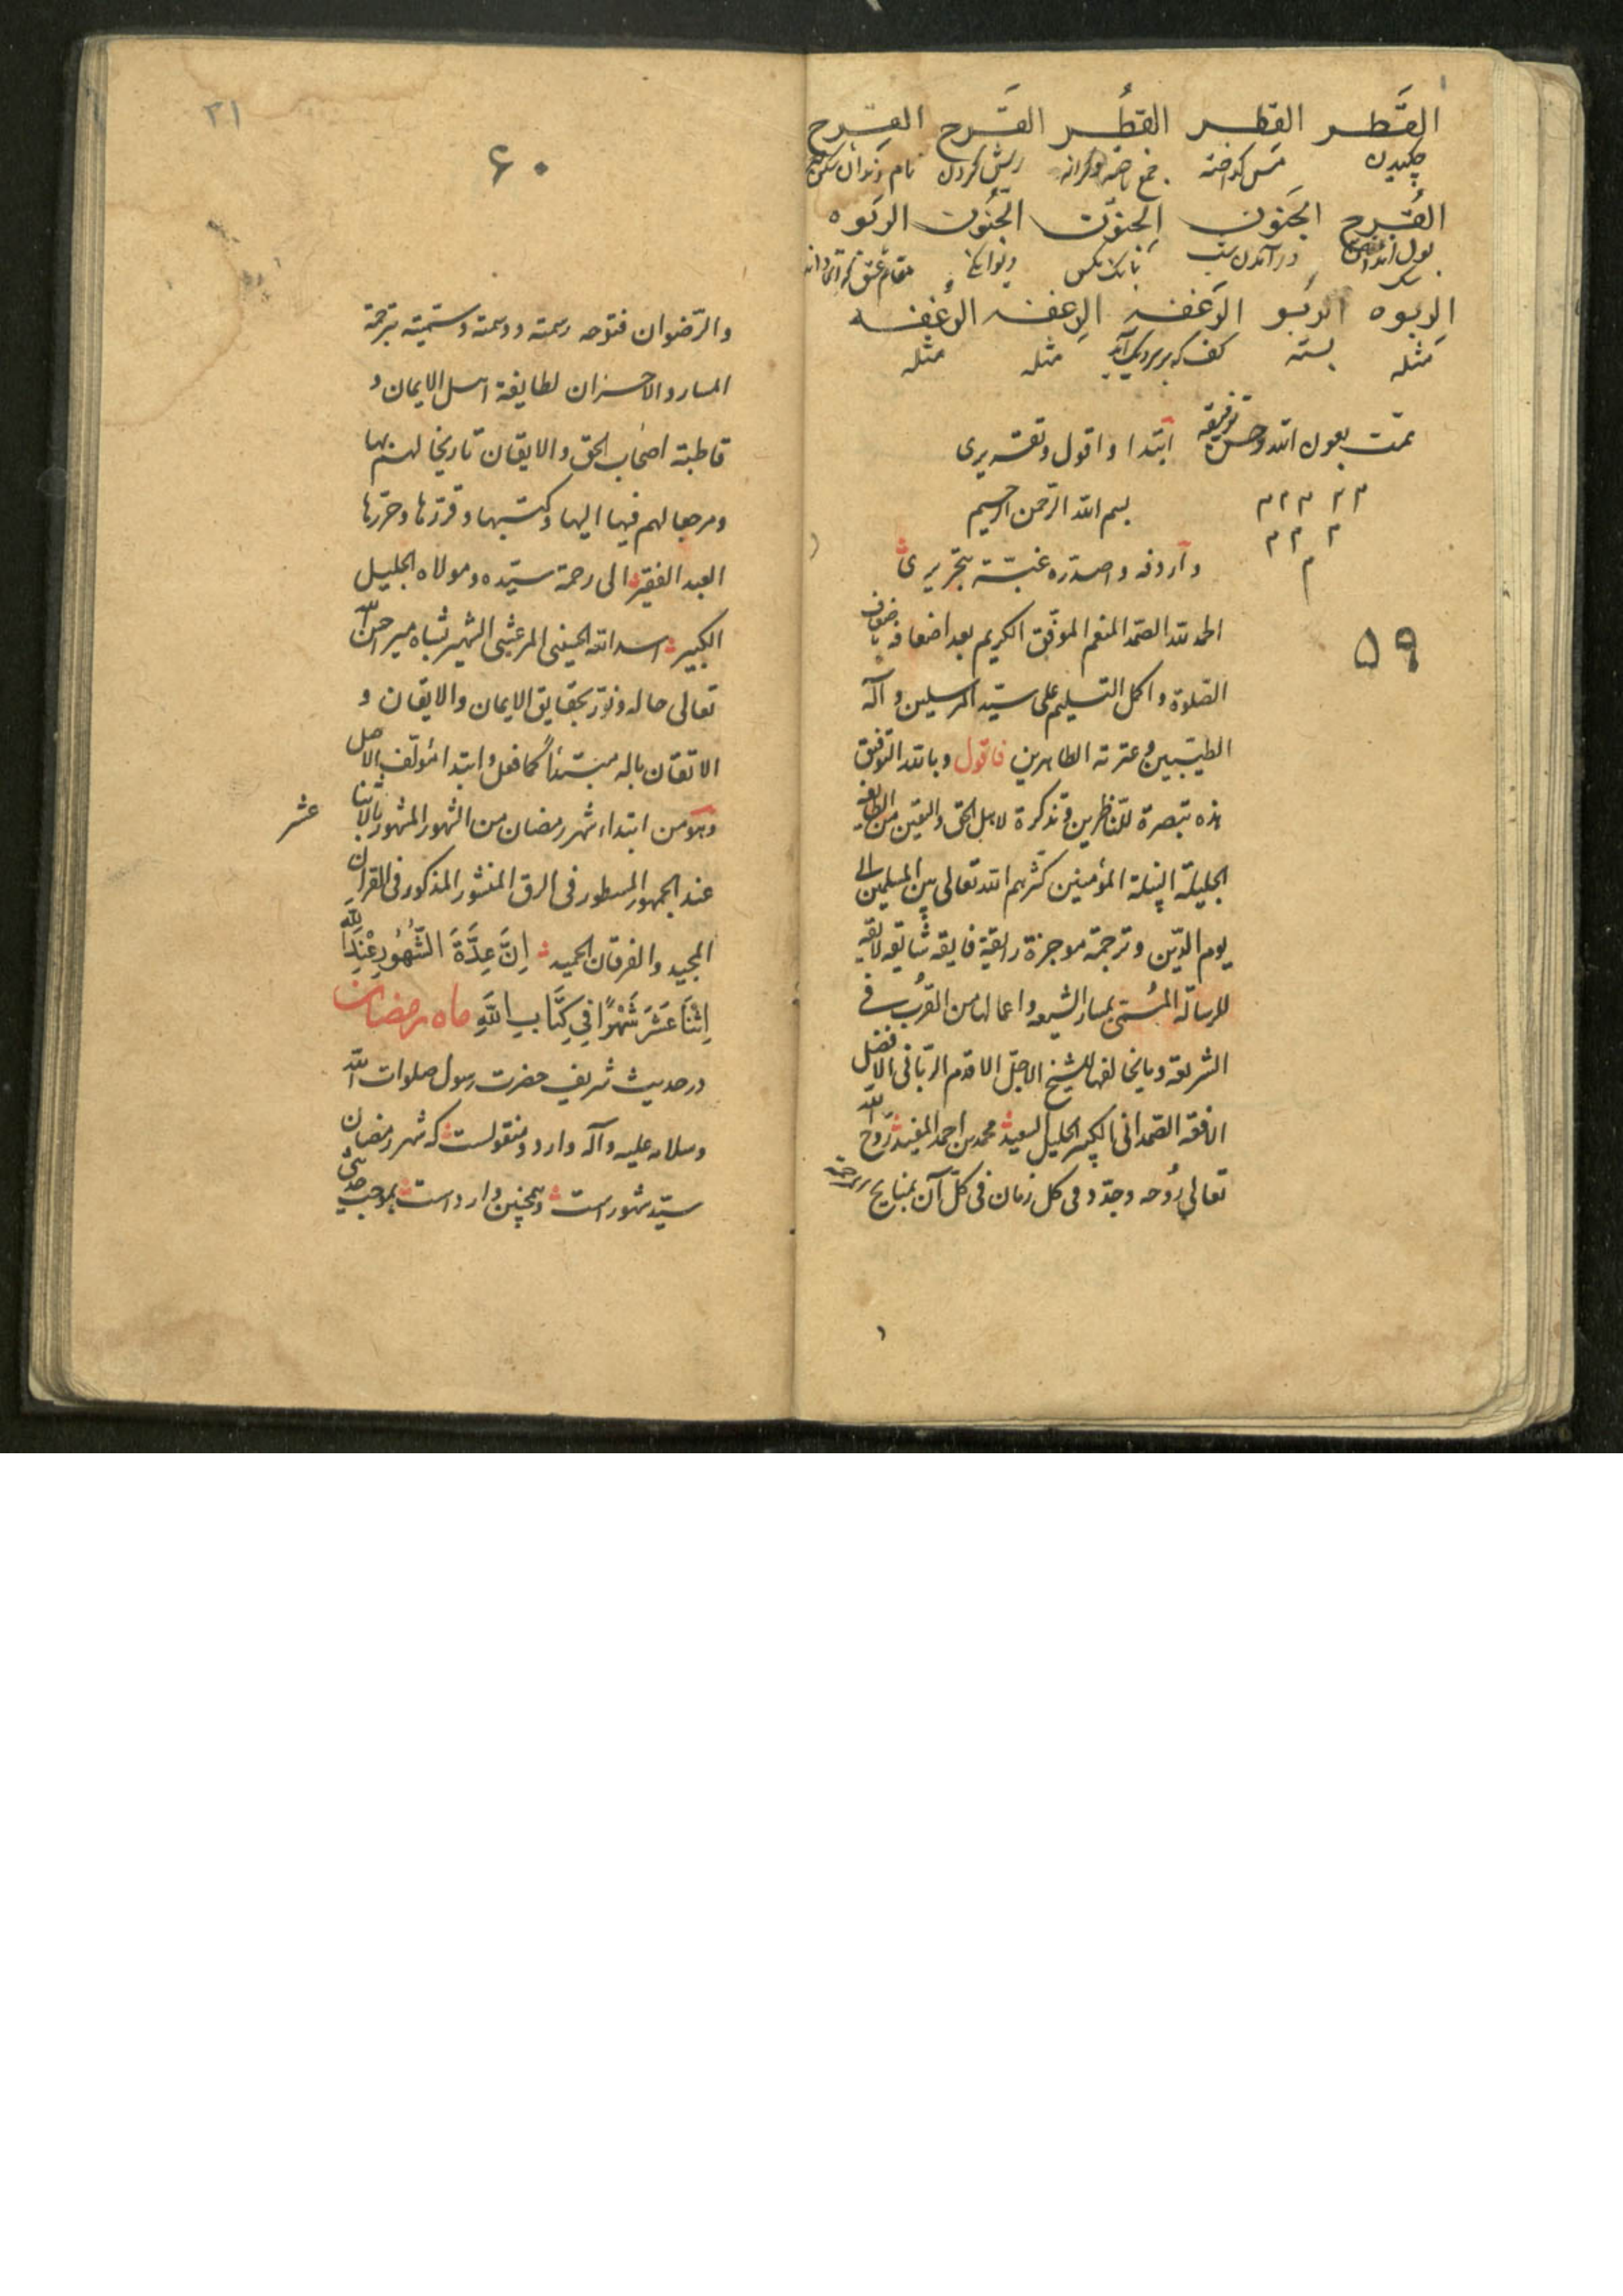 القَطر القِطر القُطر القَرح القِرح
چکیدن مس کداخته جمع ناحیه وکرانه ریش کردن نام
القُرح الجَنون الجِنون الجُنون الرَبوه
بول در آمدن شب بانک مکس دیوانکی مقام
الرِبوه الرَبو الرَغفه الرِغفه الرُغفه
مثله بسته کف که بر سر دیک آید مثله مثله
تمّت بعون الله وحسن توفیقه ابتدا واقول وتقریری
م م م م م
بسم الله الرّحمن الرحیم
م م م
م
وآردفه واصدّره غبّة بتحریری
الحمد لله الصّمد المنعم الموفّق الکریم بعد اضعافه باضعاف
۵۹
الصّلوة واکمل التسلیم علی سیّد المرسلین وآله
الطیّبین وعترته الطاهرین فاقول وبالله التوفیق
هذه تبصرة للنّاظرین وتذکرة لاهل الحق والیقین من الطایفه
الجلیلة النبیلة المؤمنین کثّرهم الله تعالی بین المسلمین الی
یوم الدّین وترجمة موجزة رایقة فایقه شایقه لایقه
للرسالة المسمّی بمسار الشیعه واعمالها من القرب فی
الشریعة وما یخالفها للشیخ الاجلّ الاقدم الربّانی الافضل
الافقه الصّمدانی الکبیر الجلیل السعید محمد بن احمد المفید روّح الله
تعالی رُوحه وجدّد فی کل زمان فی کلّ آن بمنایح رحمته
۳۱
۶۰
والرّضوان فتوحه رسمته ووسمته وسمّیته بترجمة
المسار والاحزان لطایفة اهل الایمان و
قاطبة اصحاب الحق والایقان تاریخا لهم بها
ومرجعا لهم فیها الیها وکتبها وقرّرها وحرّرها
العبد الفقیر الی رحمة سیّده ومولاه الجلیل
الکبیر اسد الله الحسینی المرعشی الشهیر بشاه میر احسن الله
تعالی حاله ونوّر بحقایق الایمان والایقان و
الاتقان باله مبتدئاً کما فعل وابتدا مؤلّف الاصل
وهو من ابتداء شهر رمضان من الشهور المشهور بالاثنا عشر
عند الجمهور المسطور فی الرق المنشور المذکور فی القرآن
المجید والفرقان الحمید اِنَّ عِدَّةَ الشُّهُورِ عِنْدَ اللهِ
اِثْنَا عَشَرَ شَهْرًا فِی کِتَابِ اللهِ ماه رمضان
در حدیث شریف حضرت رسول صلوات الله
وسلامه علیه وآله وارد ومنقولست که شهر رمضان
سیّد شهور است وهمچنین وارد است بموجب حدیثی